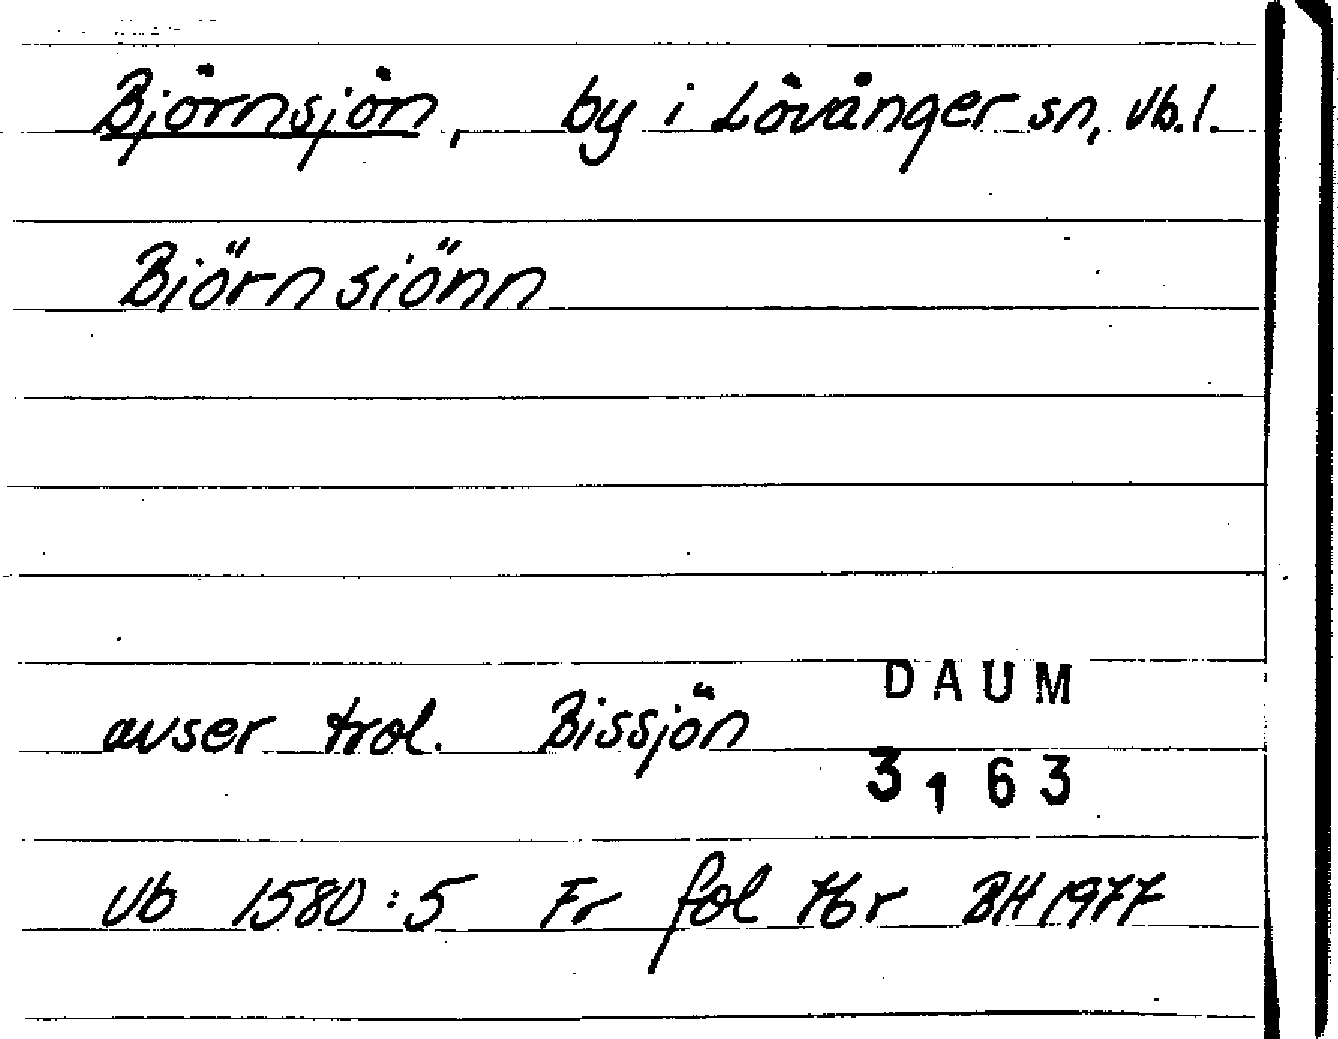 Björnsjön, by i Lövånger sn, Vb.l.
Biörnsiönn
DAUM
avser trol. Bissjön
3163
Vb 1580:5 Fr fol 76r BH 1977